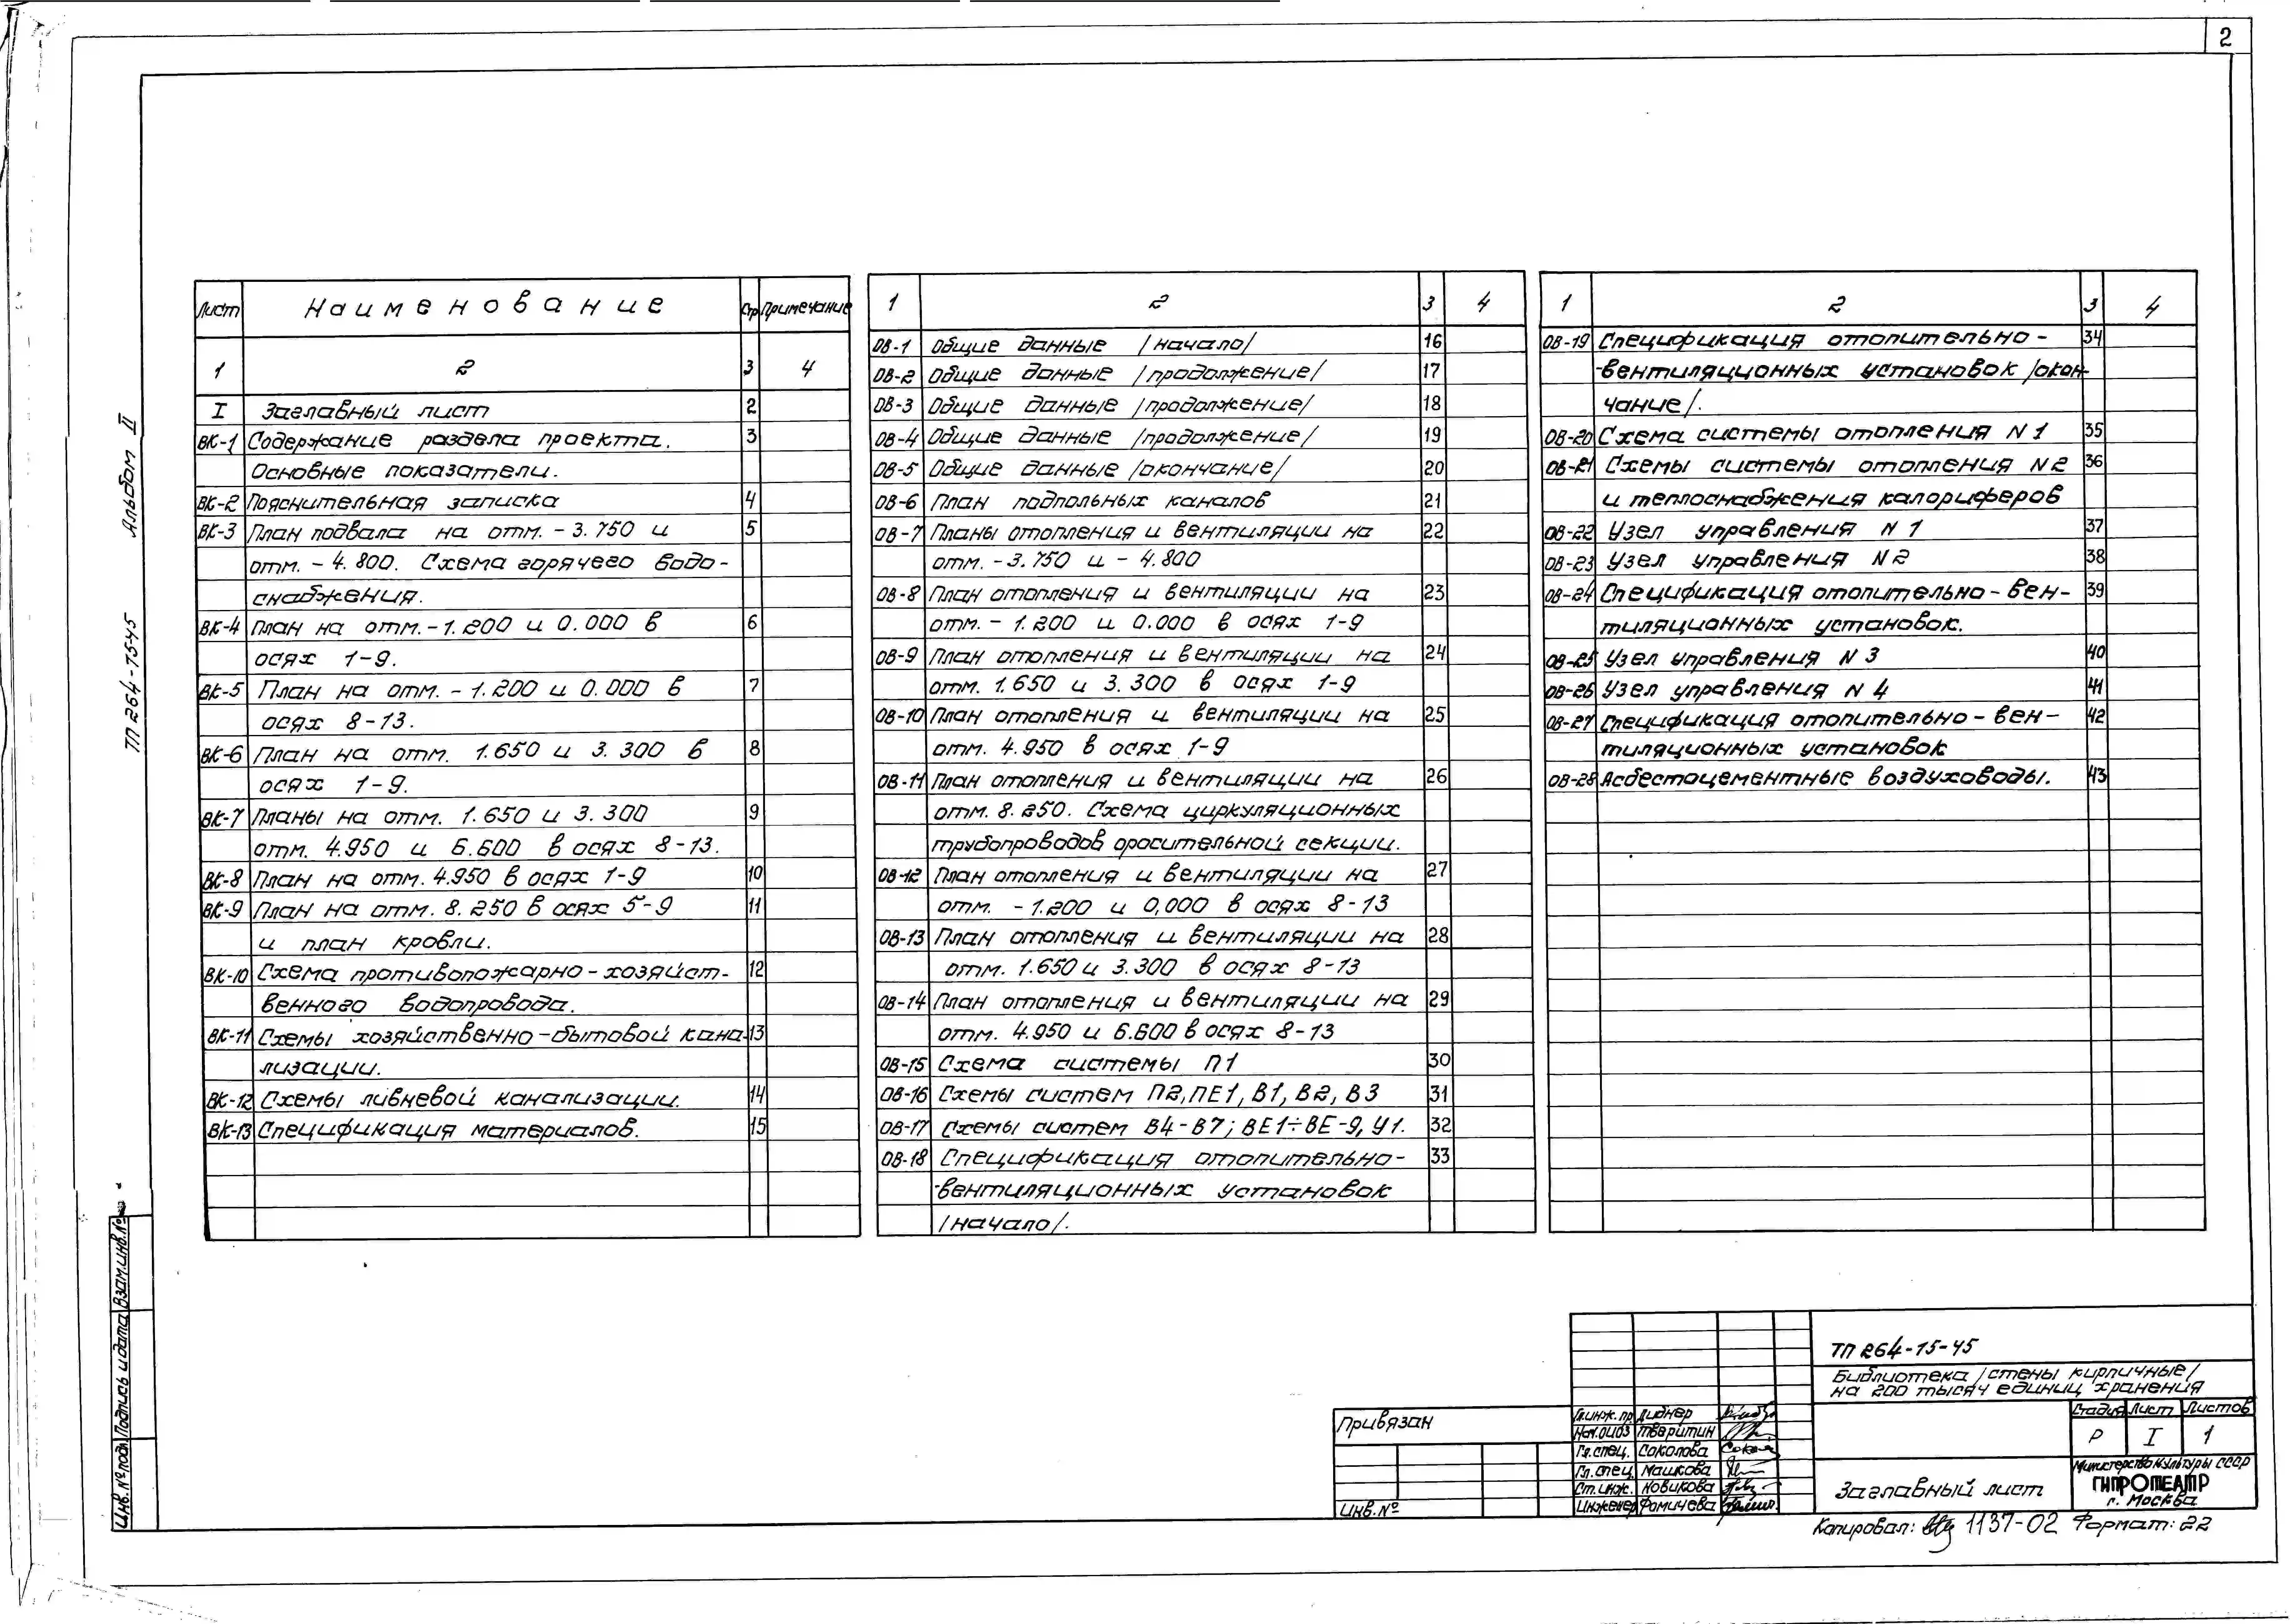 2
ТП 264-15-45 Альбом II
Лист Наименование Стр Примечание
1 2 3 4
I Заглавный лист 2
ВК-1 Содержание раздела проекта. 3
Основные показатели.
ВК-2 Пояснительная записка 4
ВК-3 План подвала на отм. -3.750 и 5
отм. -4.800. Схема горячего водо-
снабжения.
ВК-4 План на отм. -1.200 и 0.000 в 6
осях 1-9.
ВК-5 План на отм. -1.200 и 0.000 в 7
осях 8-13.
ВК-6 План на отм. 1.650 и 3.300 в 8
осях 1-9.
ВК-7 Планы на отм. 1.650 и 3.300 9
отм. 4.950 и 6.600 в осях 8-13.
ВК-8 План на отм. 4.950 в осях 1-9 10
ВК-9 План на отм. 8.250 в осях 5-9 11
и план кровли.
ВК-10 Схема противопожарно-хозяйст- 12
венного водопровода.
ВК-11 Схемы хозяйственно-бытовой кана- 13
лизации.
ВК-12 Схемы ливневой канализации. 14
ВК-13 Спецификация материалов. 15
1 2 3 4
ОВ-1 Общие данные /начало/ 16
ОВ-2 Общие данные /продолжение/ 17
ОВ-3 Общие данные /продолжение/ 18
ОВ-4 Общие данные /продолжение/ 19
ОВ-5 Общие данные /окончание/ 20
ОВ-6 План подпольных каналов 21
ОВ-7 Планы отопления и вентиляции на 22
отм. -3.750 и -4.800
ОВ-8 План отопления и вентиляции на 23
отм. -1.200 и 0.000 в осях 1-9
ОВ-9 План отопления и вентиляции на 24
отм. 1.650 и 3.300 в осях 1-9
ОВ-10 План отопления и вентиляции на 25
отм. 4.950 в осях 1-9
ОВ-11 План отопления и вентиляции на 26
отм. 8.250. Схема циркуляционных
трубопроводов оросительной секции.
ОВ-12 План отопления и вентиляции на 27
отм. -1.200 и 0,000 в осях 8-13
ОВ-13 План отопления и вентиляции на 28
отм. 1.650 и 3.300 в осях 8-13
ОВ-14 План отопления и вентиляции на 29
отм. 4.950 и 6.600 в осях 8-13
ОВ-15 Схема системы П1 30
ОВ-16 Схемы систем П2, ПЕ1, В1, В2, В3 31
ОВ-17 Схемы систем В4-В7; ВЕ1÷ВЕ-9, У1. 32
ОВ-18 Спецификация отопительно- 33
-вентиляционных установок
/начало/.
1 2 3 4
ОВ-19 Спецификация отопительно- 34
-вентиляционных установок /окон-
чание/.
ОВ-20 Схема системы отопления N1 35
ОВ-21 Схемы системы отопления N2 36
и теплоснабжения калориферов
ОВ-22 Узел управления N1 37
ОВ-23 Узел управления N2 38
ОВ-24 Спецификация отопительно-вен- 39
тиляционных установок.
ОВ-25 Узел управления N3 40
ОВ-26 Узел управления N4 41
ОВ-27 Спецификация отопительно-вен- 42
тиляционных установок
ОВ-28 Асбестоцементные воздуховоды. 43
Инв.№ подл. Подпись и дата Взам.инв.№
Привязан
Инв.№
Гл.инж.пр. Лиднер
Нач.ОИОЗ Тверитин
Гл.спец. Соколова
Гл.спец. Машкова
Ст.инж. Новикова
Инженер Фомичева
ТП 264-15-45
Библиотека /стены кирпичные/
на 200 тысяч единиц хранения
Стадия Лист Листов
Р I 1
Заглавный лист
Министерство культуры СССР
ГИПРОТЕАТР
г. Москва
Копировал: 1137-02 Формат: 22